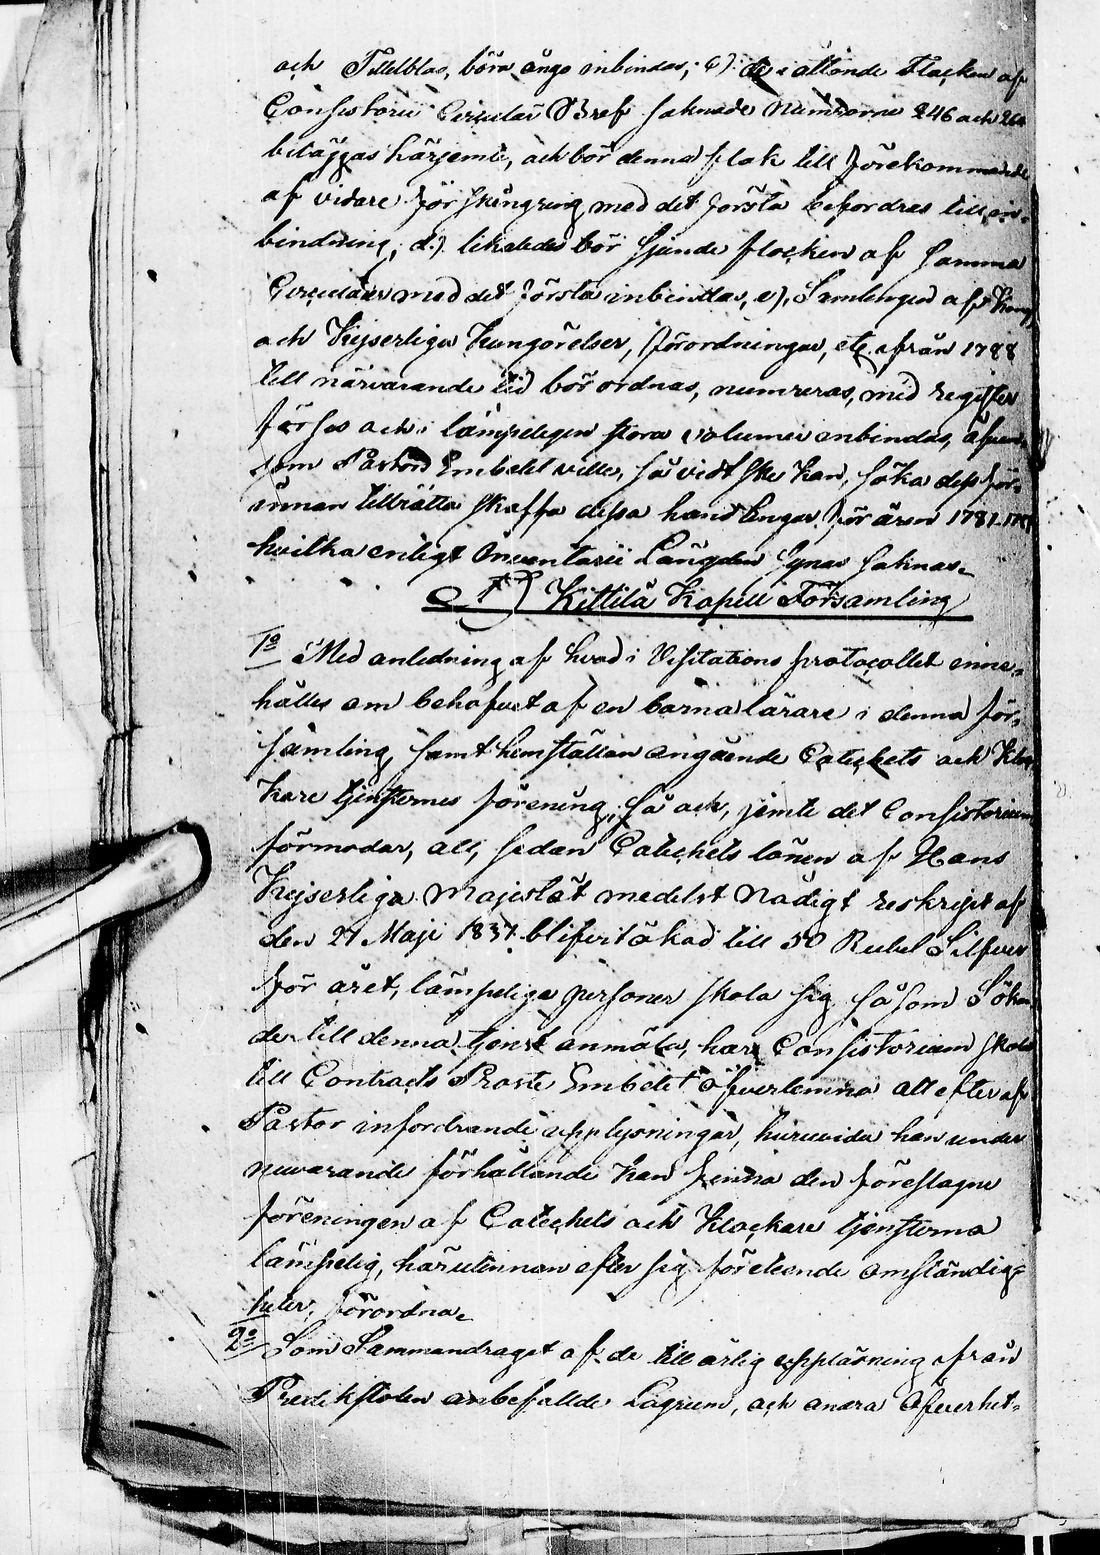 och Titelblad, böra ånyo inbindas; c) de i åttonde Flocken af
Consistorii Circulär Bref saknade Numrorne 246 och 260
biläggas härjemte, och bör denna flok till förekommande
af vidare förskingring med det första befordras till in-
bindning; d.) likaledes bör sjunde flocken af samma
Circulairer med det första inbindas, e), Samlingen af Kongl
och Kejserliga Kungörelser, förordningar, etc. ifrån 1788
till närvarande tid bör ordnas, numreras, med register
förses och i lämpeligen stora volumer inbindas, äfven-
som Pastors Embetet ville, så vidt ske kan, söka dess för-
innan tillrätta skaffa dessa handlingar för åren 1781-17
hvilka enligt Inventarii Längden synas saknas.
Kittilä Kapell Församling
1o Med anledning af hvad i Visitations protocollet inne-
hålles om behofvet af en barnalärare i denna för-
samling, samt hemställan angående Catechets och Kloc
kare tjensternes förening, så ock, jemte det Consistorium
förmodar, att, sedan Catechets lönen af Hans
Kejserliga Majestät medelst Nådigt reskript af
den 27 Maji 1837 blifvit ökad till 50 Rubel Silfver
för året, lämpelige personer skola sig såsom Sökan
de till denna tjenst anmäla, har Consistorium skolat
till Contracts Prosts Embetet öfverlemna att efter af
Pastor infordrande upplysningar, huruvida han under
nuvarande förhållande kan finna den föreslagne
föreningen af Catechets och Klockare tjensterna
lämpelig, härutinnan efter sig företeende omständig-
heter, förordna.
2o Som Sammandraget af de till årlig uppläsning ifrån
Predikstolen anbefallde Lagrum, och andra Öfverhet-